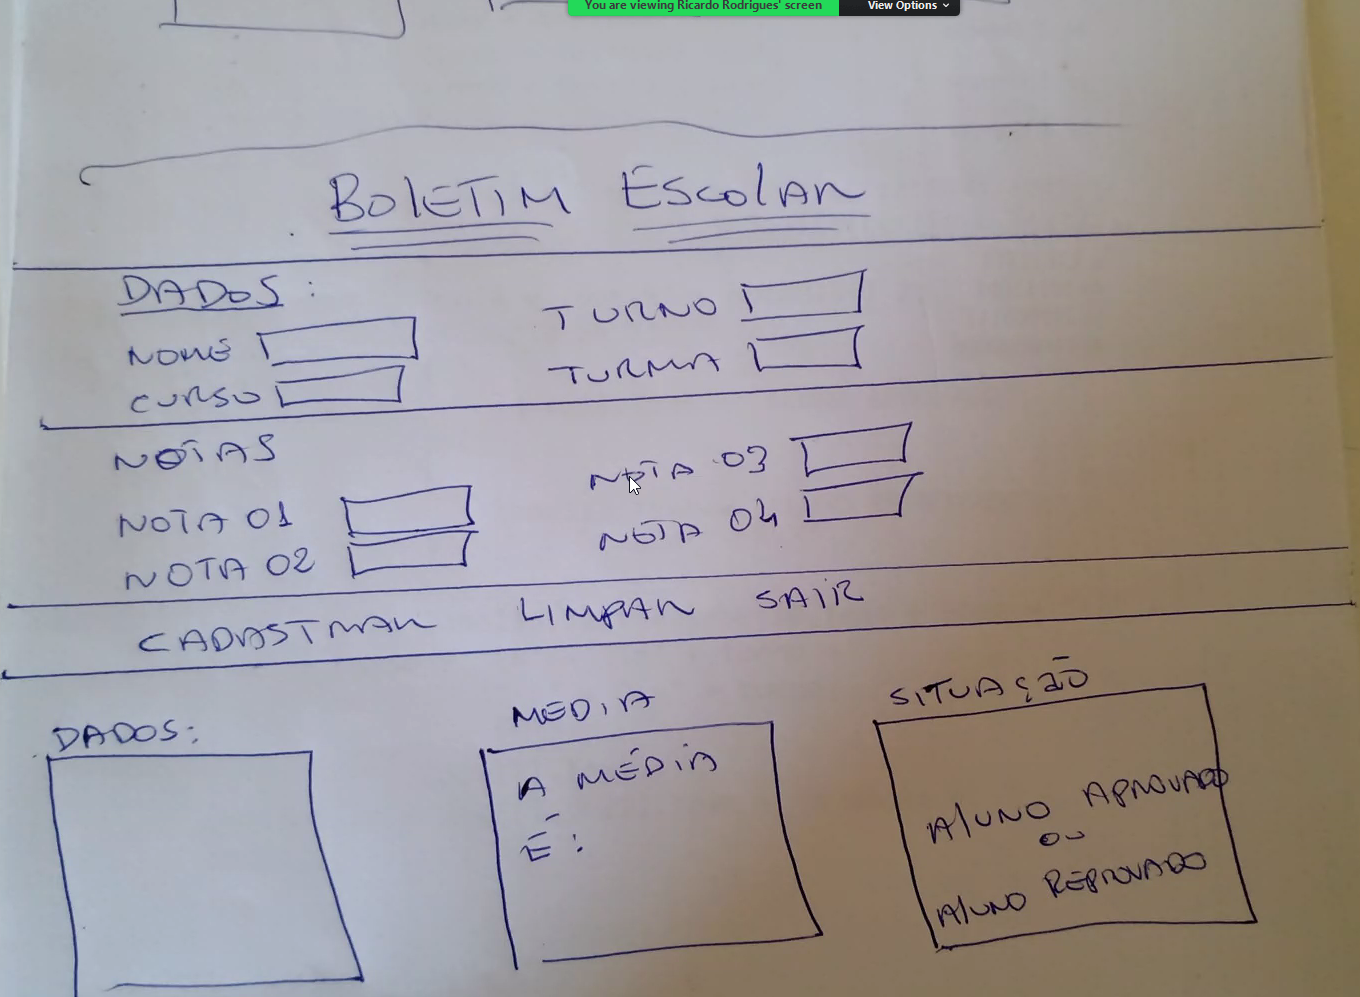 You are viewing Ricardo Rodrigues' screen View Options
BOLETIM ESCOLAR
DADOS:
NOME
TURNO
CURSO
TURMA
NOTAS
NOTA 01
NOTA 03
NOTA 02
NOTA 04
CADASTRAR LIMPAR SAIR
DADOS:
MEDIA
A MÉDIA
É:
SITUAÇÃO
ALUNO APROVADO
OU
ALUNO REPROVADO